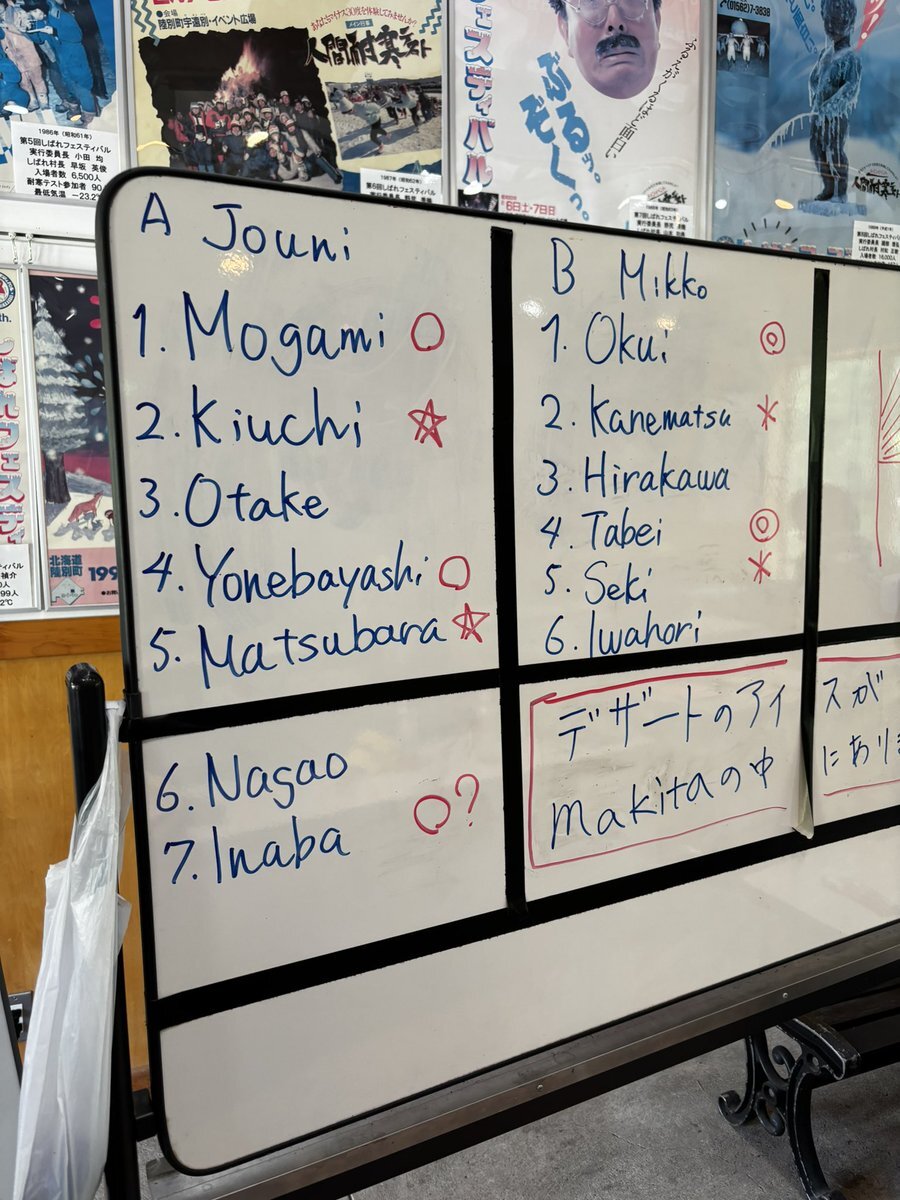 会場
陸別町宇遠別・イベント広場
人間耐寒テスト
1986年(昭和61年)
第5回しばれフェスティバル
実行委員長 小田 均
しばれ村長 早坂 英俊
入場者数 6,500人
耐寒テスト参加者 90
最低気温 −23.2
1987年(昭和62年)
第6回しばれフェスティバル
ェスティバル
ぶるッ。
ぞくっ。
ふるえがくるほど面白い
6日土・7日日
第7回しばれフェスティバル
(01562)7-3838
人間耐寒
入場者数 16,000人
A Jouni
1. Mogami ○
2. Kiuchi ☆
3. Otake
4. Yonebayashi ○
5. Matsubara ☆
6. Nagao
○?
7. Inaba
B Mikko
1. Okui ◎
2. Kanematsu *
3. Hirakawa
4. Tabei ◎
5. Seki *
6. Iwahori
デザートのアイスが
makitaの中にあり
北海道
陸別町
199